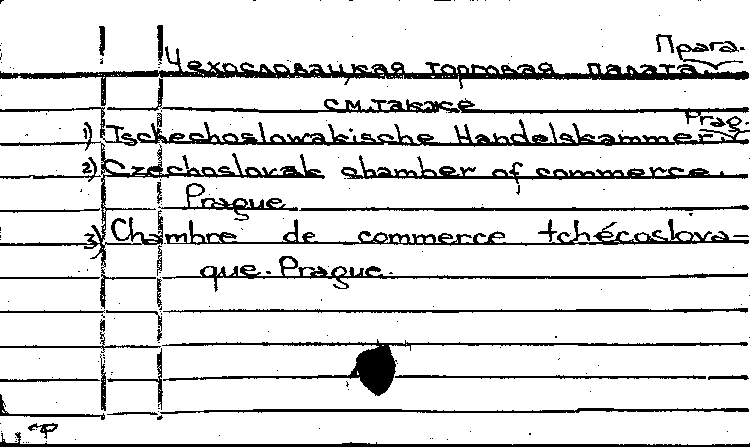 Чехословацкая торговая палата. Прага.
см. также
1) Tschechoslowakische Handelskammer. Prag.
2) Czechoslovak chamber of commerce.
Prague
3) Chambre de commerce tchécoslova-
que. Prague.